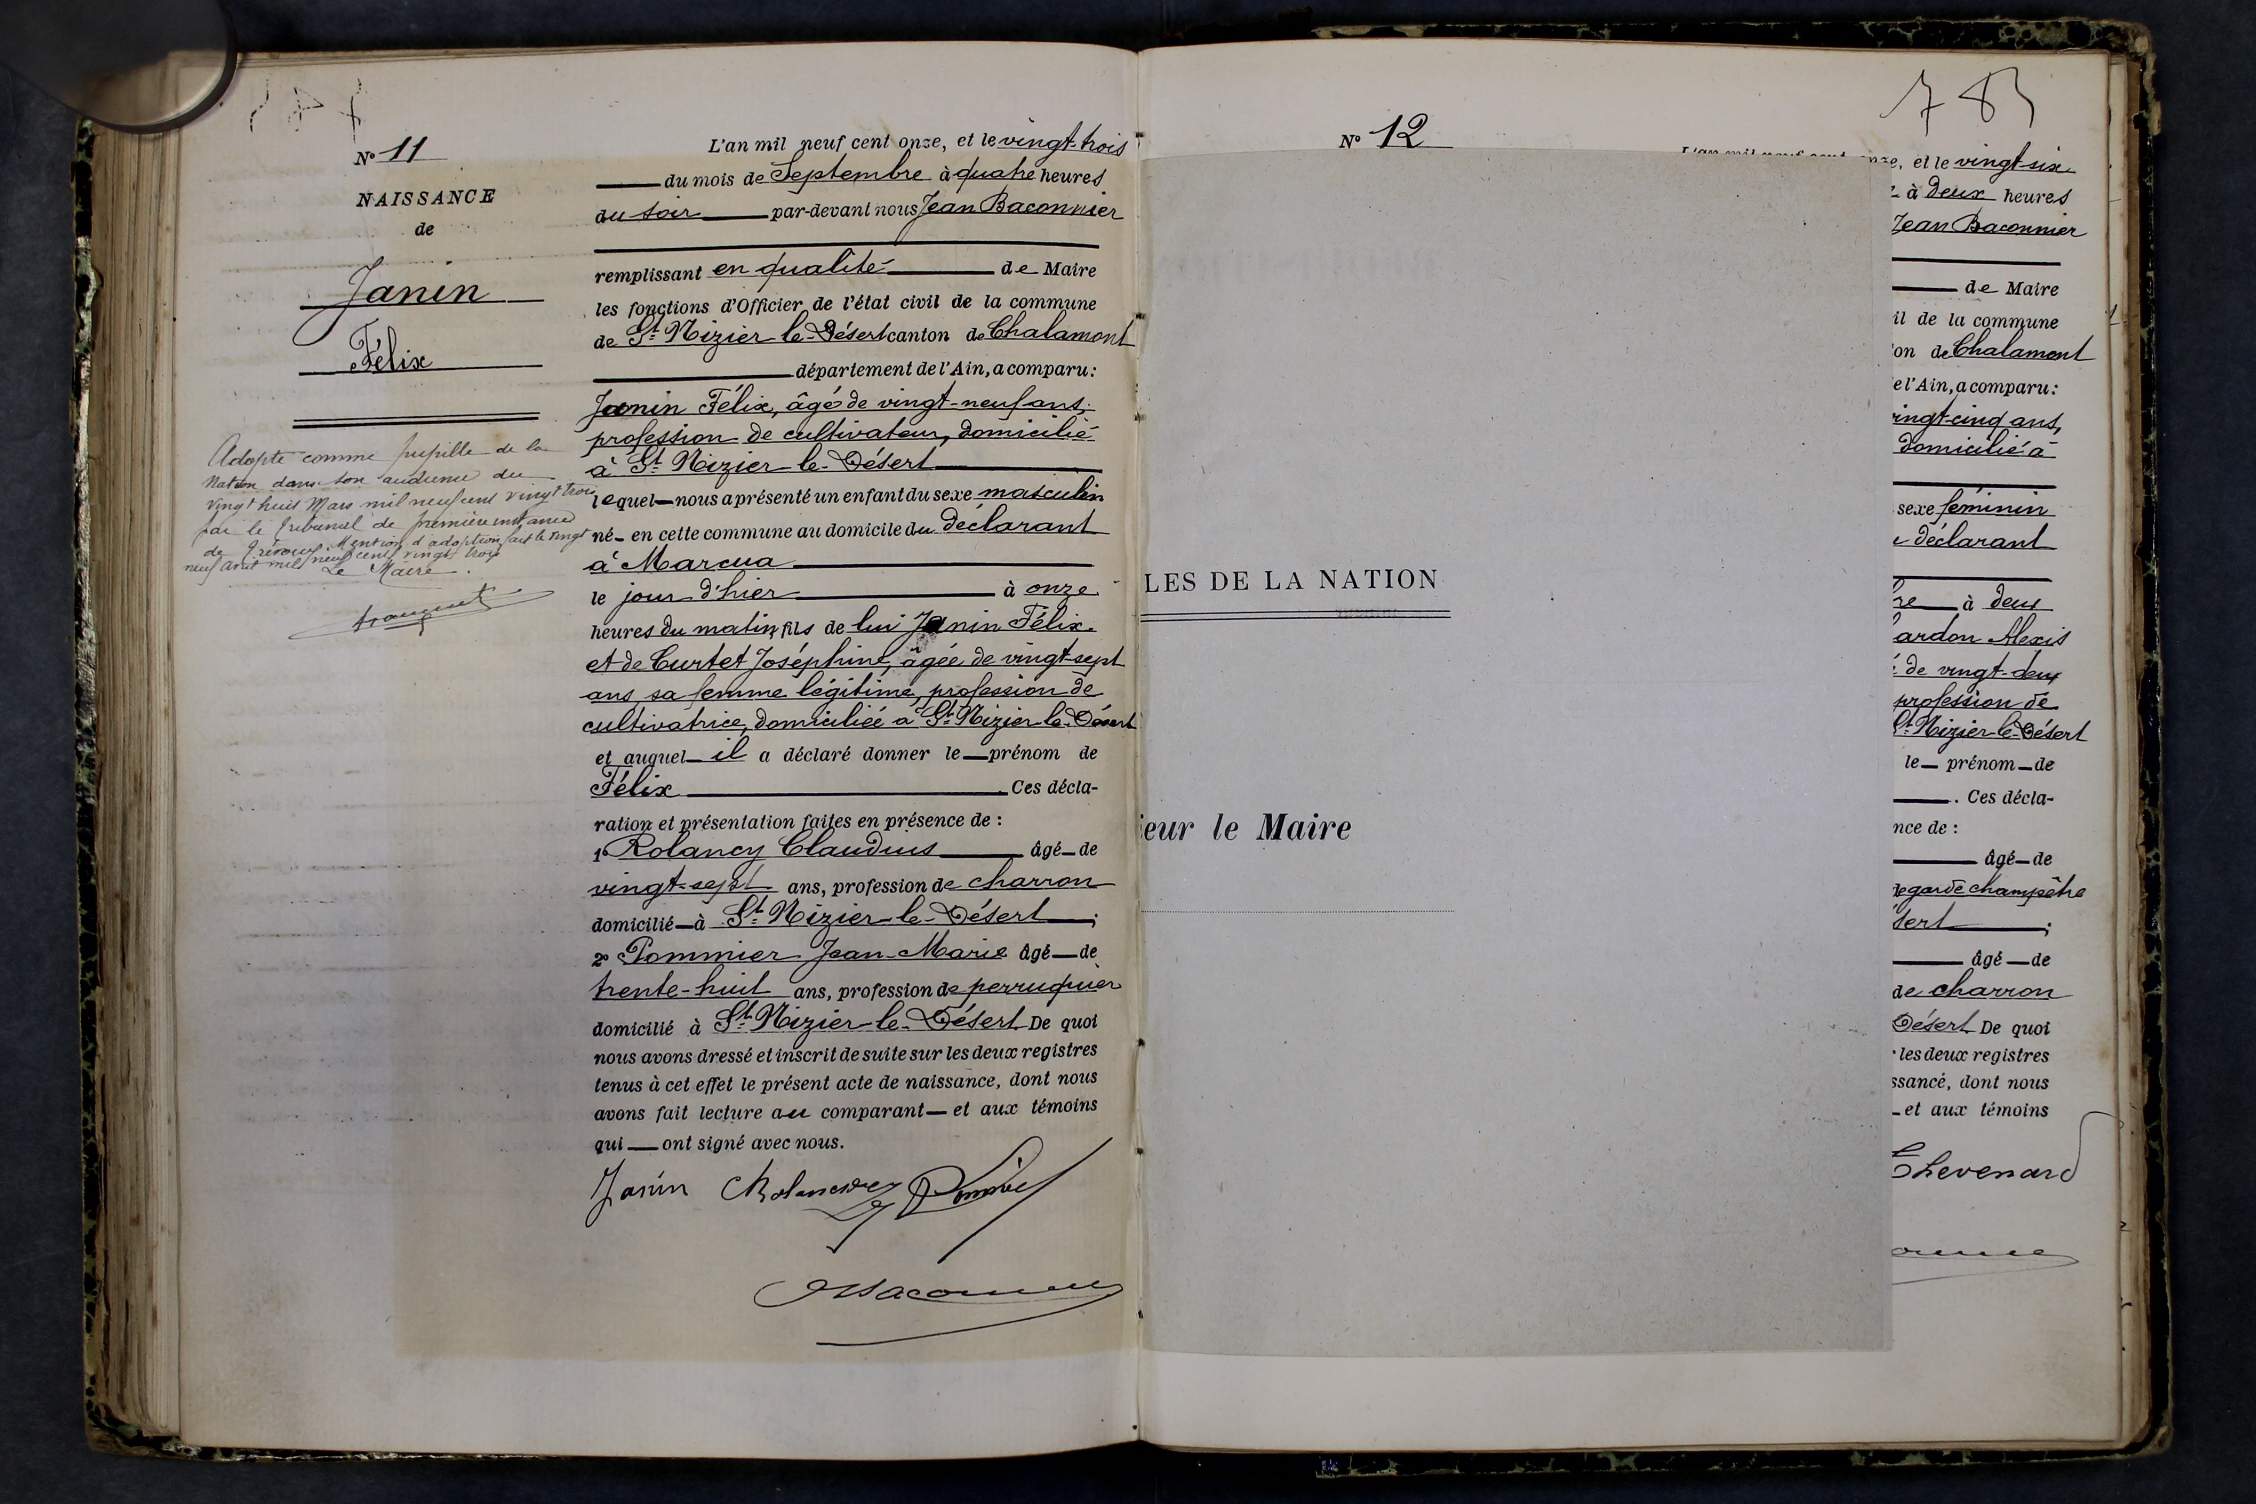 N° 11
NAISSANCE
de
Janin
Félix
Adopté comme pupille de la
Nation dans son audience du
vingt huit Mars mil neuf cent vingt trois
par le Tribunal de première instance
de Trévoux. Mention d'adoption fait le vingt
neuf Avril mil neuf cent vingt trois
Le Maire.
L'an mil neuf cent onze, et le vingt-trois
du mois de Septembre à quatre heures
du soir par-devant nous Jean Baconnier
remplissant en qualité de Maire
les fonctions d'Officier de l'état civil de la commune
de St Nizier-le-Désert canton de Chalamont
département de l'Ain, a comparu :
Janin Félix, âgé de vingt-neuf ans,
profession de cultivateur, domicilié
à St Nizier-le-Désert
lequel nous a présenté un enfant du sexe masculin
né en cette commune au domicile du déclarant
à Marcua
le jour d'hier à onze
heures du matin, fils de lui Janin Félix
et de Curtet Joséphine, âgée de vingt-sept
ans, sa femme légitime, profession de
cultivatrice, domiciliée à St Nizier-le-Désert
et auquel il a déclaré donner le prénom de
Félix. Ces décla-
ration et présentation faites en présence de :
1° Rolancy Claudius âgé de
vingt-sept ans, profession de charron
domicilié à St Nizier-le-Désert ;
2° Pommier Jean-Marie âgé de
trente-huit ans, profession de perruquier
domicilié à St Nizier-le-Désert De quoi
nous avons dressé et inscrit de suite sur les deux registres
tenus à cet effet le présent acte de naissance, dont nous
avons fait lecture au comparant et aux témoins
qui ont signé avec nous.
Janin
N° 12
LES DE LA NATION
ieur le Maire
783
nze, et le vingt-six
à deux heures
Jean Baconnier
de Maire
il de la commune
on de Chalamont
e l'Ain, a comparu :
ingt-cinq ans,
domicilié à
sexe féminin
déclarant
re à deux
ardon Alexis
de vingt-deux
profession de
St Nizier-le-Désert
le prénom de
. Ces décla-
nce de :
âgé de
de garde champêtre
sert ;
âgé de
de charron
Désert De quoi
les deux registres
ssance, dont nous
et aux témoins
Thevenard